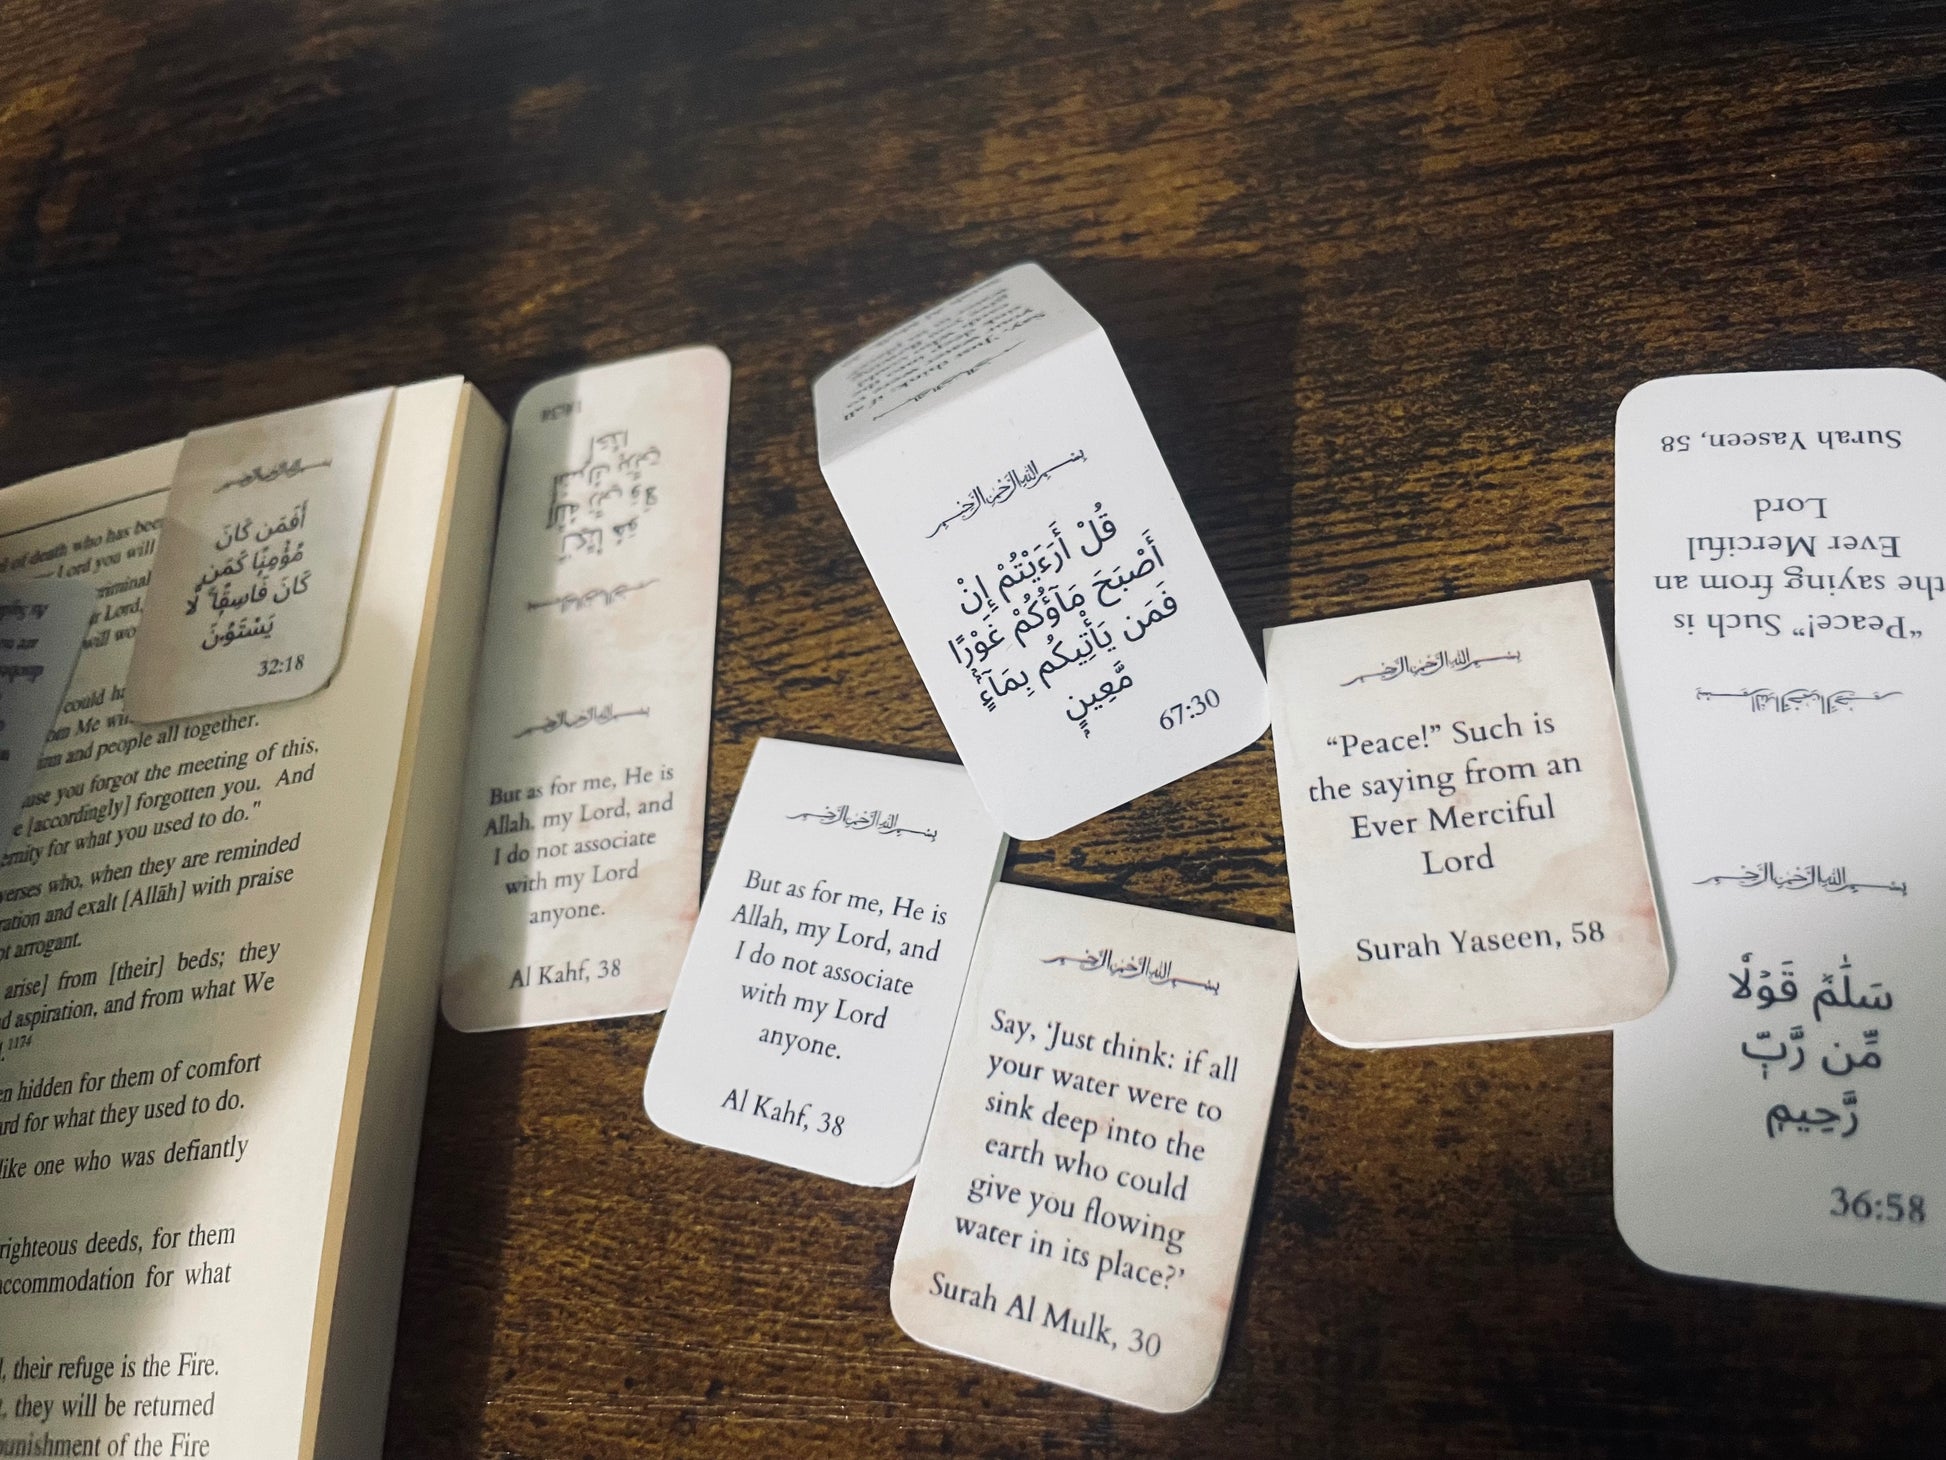 بسم الله الرحمن الرحيم
أَفَمَن كَانَ
مُؤْمِنًا كَمَن
كَانَ فَاسِقًا ۚ لَّا
يَسْتَوُۥنَ
32:18
of death who has been
Lord you will
criminal
Lord,
will
could
Me
and people all together.
you forgot the meeting of this,
[accordingly] forgotten you. And
for what you used to do."
verses who, when they are reminded
and exalt [Allāh] with praise
arrogant.
arise] from [their] beds; they
aspiration, and from what We
1174
hidden for them of comfort
for what they used to do.
like one who was defiantly
righteous deeds, for them
accommodation for what
their refuge is the Fire.
they will be returned
punishment of the Fire
18:38
بسم الله الرحمن الرحيم
But as for me, He is
Allah, my Lord, and
I do not associate
with my Lord
anyone.
Al Kahf, 38
بسم الله الرحمن الرحيم
But as for me, He is
Allah, my Lord, and
I do not associate
with my Lord
anyone.
Al Kahf, 38
'Just think: if all
بسم الله الرحمن الرحيم
قُلْ أَرَءَيْتُمْ إِنْ
أَصْبَحَ مَآؤُكُمْ غَوْرًا
فَمَن يَأْتِيكُم بِمَآءٍ
مَّعِينٍ
67:30
بسم الله الرحمن الرحيم
Say, ‘Just think: if all
your water were to
sink deep into the
earth who could
give you flowing
water in its place?’
Surah Al Mulk, 30
بسم الله الرحمن الرحيم
“Peace!” Such is
the saying from an
Ever Merciful
Lord
Surah Yaseen, 58
بسم الله الرحمن الرحيم
“Peace!” Such is
the saying from an
Ever Merciful
Lord
Surah Yaseen, 58
بسم الله الرحمن الرحيم
سَلَٰمٌ قَوْلًا
مِّن رَّبٍّ
رَّحِيمٍ
36:58